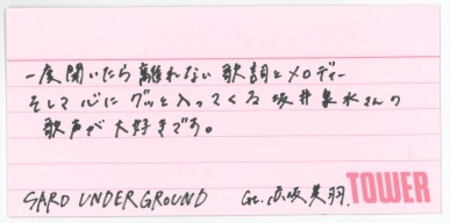 一度聞いたら離れない歌詞とメロディー
そして心にグッと入ってくる坂井泉水さんの
歌声が大好きです。
SARD UNDERGROUND Gt. 赤坂美羽.
TOWER